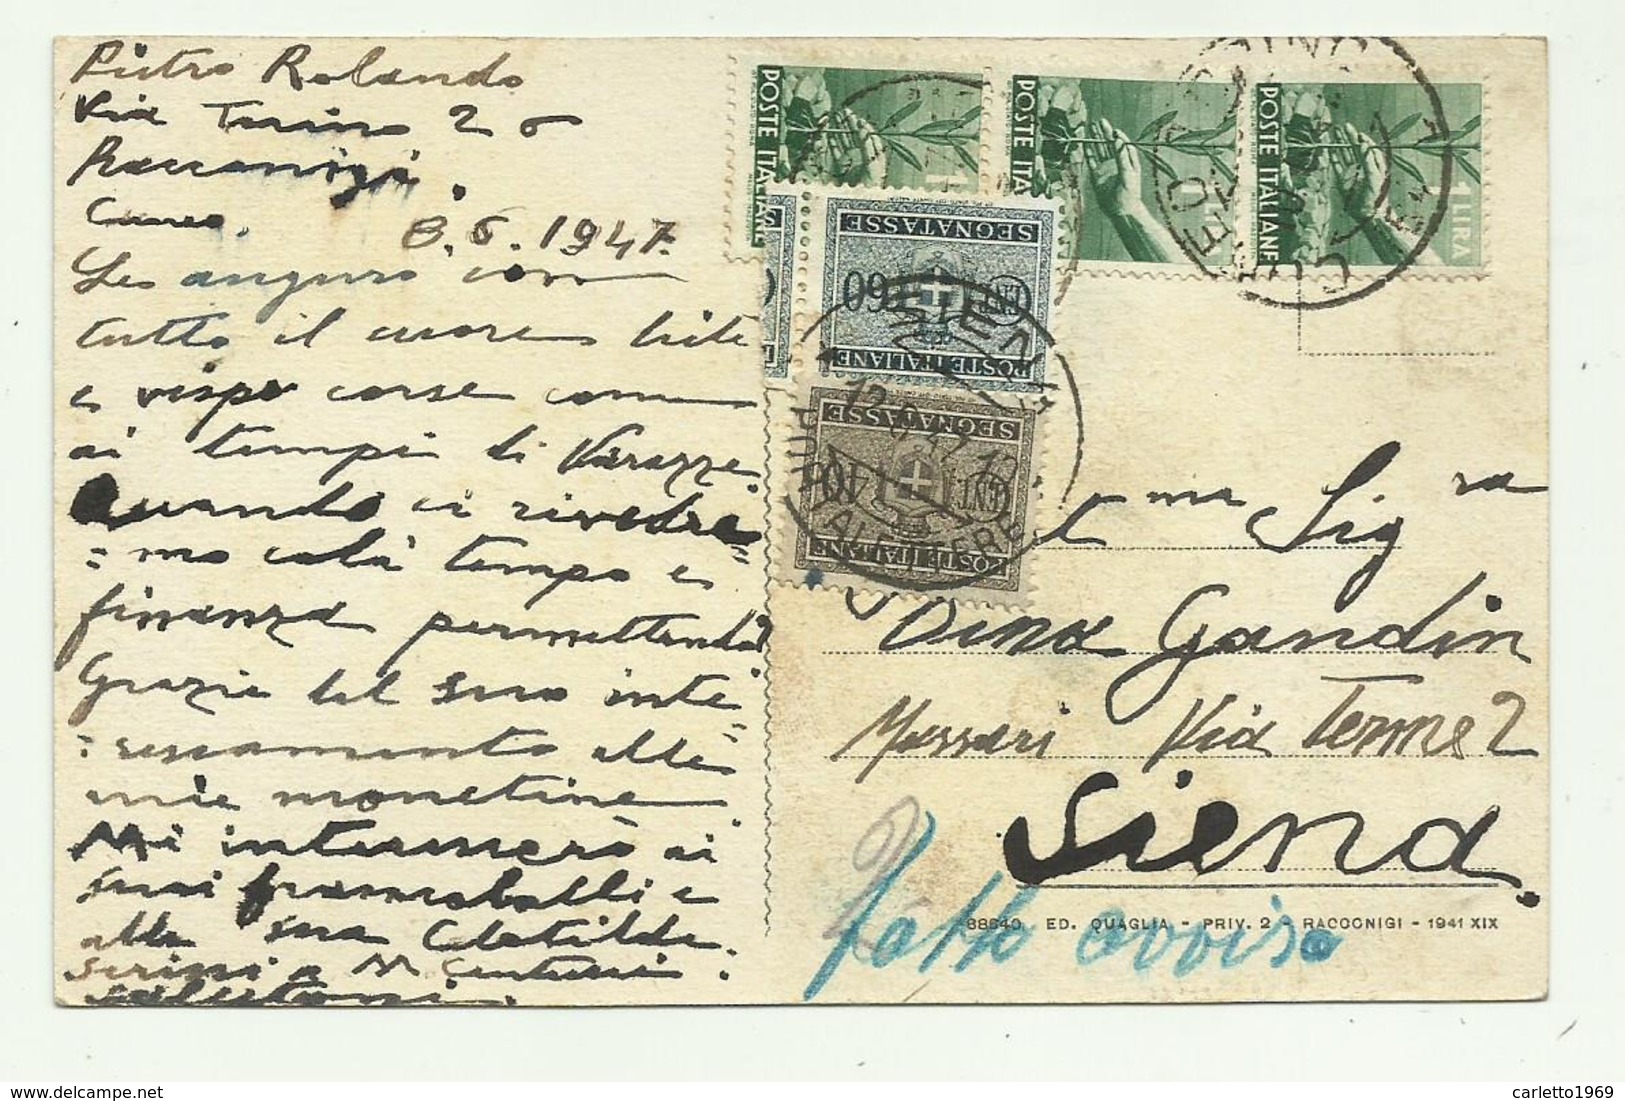 Pietro Rolando
Via Torino 26
Racconigi.
Cuneo. 8.6.1947.
Le auguro con
tutto il cuore
e vispo corse come
ai tempi di Varazze
Quando ci rivedre=
=mo colà tempo e
finanza permettendo?
Grazie del suo inte=
=ressamento alle
mie monetine
Mi interesserò ai
suoi francobolli e
alla sua Clotilde.
POSTE ITALIANE
1 LIRA
POSTE ITALIANE
1 LIRA
POSTE ITALIANE
1 LIRA
SEGNATASSE
CENT. 60
POSTE ITALIANE
SEGNATASSE
CENT. 10
POSTE ITALIANE
SIENA
12.6.47.10
ma Sig ra
Dina Gandin
Massari Via Terme 2
Siena.
fatto avviso
88640 ED. QUAGLIA - PRIV. 2 - RACCONIGI - 1941 XIX
carletto1969